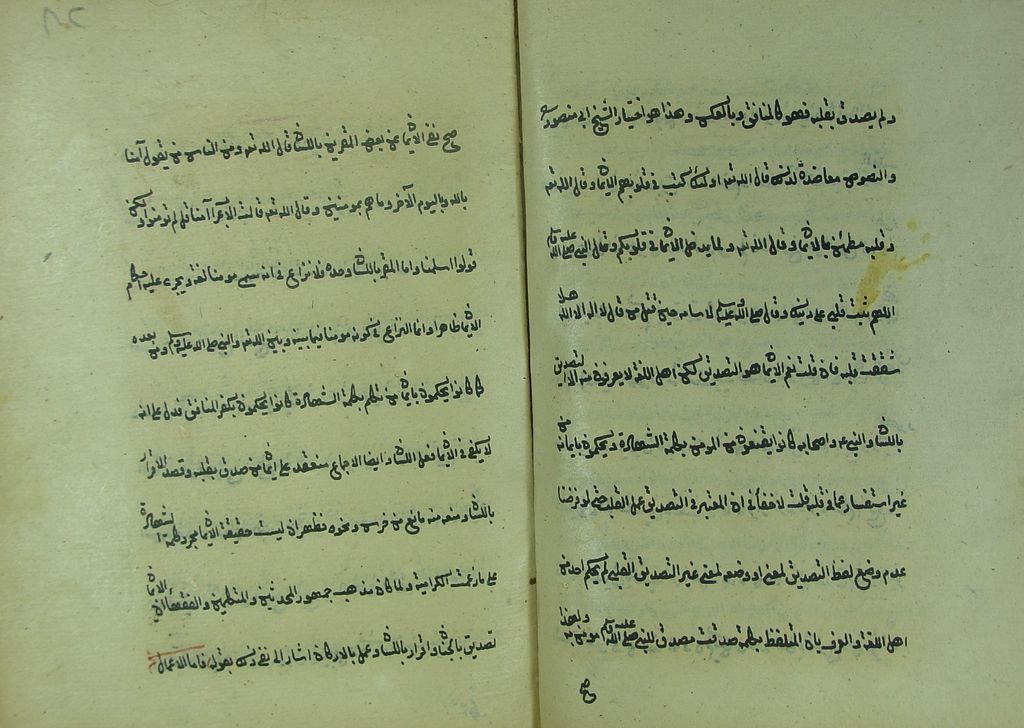 ولم يصدق بقلبه فهو كالمنافق وبالعكس وهذا هو اختيار الشيخ ابي منصور رح
والنصوص معاضدة لذلك قال الله تعه اولئك كتب في قلوبهم الايمان وقال الله تعه
وقلبه مطمئن بالايمان وقال الله تعه ولما يدخل الايمان في قلوبكم وقال النبي صلى الله عليه وسلم
اللهم ثبت قلبي على دينك وقال صلى الله عليه وسلم لاسامه حين قتل من قال لا اله الا الله هلا
شققت قلبه فان قلت نعم الايمان هو التصديق لكن اهل اللغة لا يعرفون منه الا التصديق
باللسان والنبي عم واصحابه كانوا يقنعون من المومن بكلمة الشهادة ويحكمون بايمانه من
غير استفسار عما في قلبه قلت لا خفأ في ان المعتبر في التصديق عمل القلب حتى لو فرضنا
عدم وضع لفظ التصديق لمعنى او وضعه لمعنى غير التصديق القلبي لم يحكم احد من
اهل اللغة والعرف بان المتلفظ بكلمة صدقت مصدق للنبي صلى الله عليه وسلم مومن به ولهذا
صح
صح نفي الايمان عن بعض المقرين باللسان قال الله تعه ومن الناس من يقول آمنا
بالله وباليوم الآخر وما هم بمومنين وقال الله تعه قالت الاعراب آمنا قل لم تومنوا ولكن
قولوا اسلمنا واما المقر باللسان وحده فلا نزاع في انه يسمى مومنا لغة ويجرى عليه احكام
الايمان ظاهرا وانما النزاع في كونه مومنا فيما بينه وبين الله تعه والنبي صلى الله عليه وسلم ومن بعده
كما كانوا يحكمون بايمان من تكلم بكلمة الشهادة كانوا يحكمون بكفر المنافق فدل على انه
لا يكفي في الايمان فعل اللسان وايضا الاجماع منعقد على ايمان من صدق بقلبه وقصد الاقرار
باللسان ومنعه منه مانع من خرس ونحوه فظهر ان ليست حقيقة الايمان مجرد كلمة الشهادة
على ما زعمت الكرامية ولما كان مذهب جمهور المحدثين والمتكلمين والفقهأ ان الايمان
تصديق بالجنان واقرار باللسان وعمل بالاركان اشار الى نفي ذلك بقوله فاما الاعمال